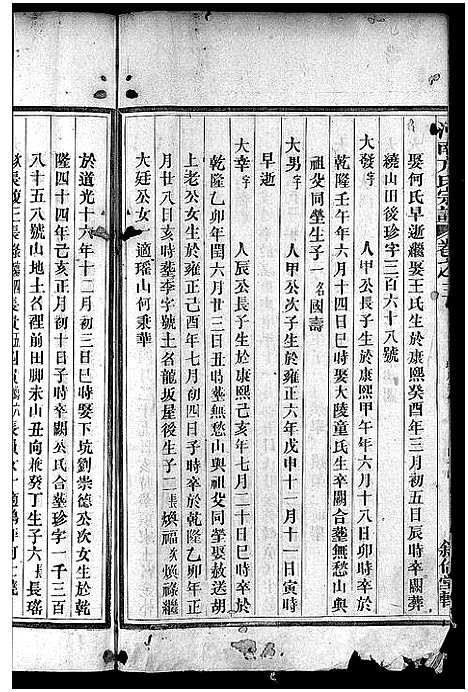 河南方氏宗譜
娶何氏早逝繼娶王氏生於康熙癸酉年三月初五日辰時卒闕葬
繞山田後珍字三百六十八號
大發字 人甲公長子生於康熙甲午年六月十八日卯時卒於
乾隆壬午年六月十四日巳時娶大陵童氏生卒闕合塟無愁山與
祖斐同塋生子一名國壽
大男字 人甲公次子生於雍正六年戊申十一月十一日寅時
早逝
大幸字 人辰公長子生於康熙己亥年七月二十日子時卒於乾
隆乙卯年閏六月廿三日丑時塟無愁山與祖斐同塋娶赦送胡
上老公女生於雍正己酉年七月初四日子時卒於乾隆乙卯年正
月廿八日亥時塟季字號土名龍坂屋後生子二長煥福次煥祿繼
大廷公女一適瑤山何秉華
於道光十六年十二月初三日巳時娶下坑劉崇德公次女生於乾
隆四十四年己亥正月初十日子時卒闕公氏合塟珍字一千三百
八十五八號山地土名裡前田脚未山丑向兼癸丁生子六長長瑤